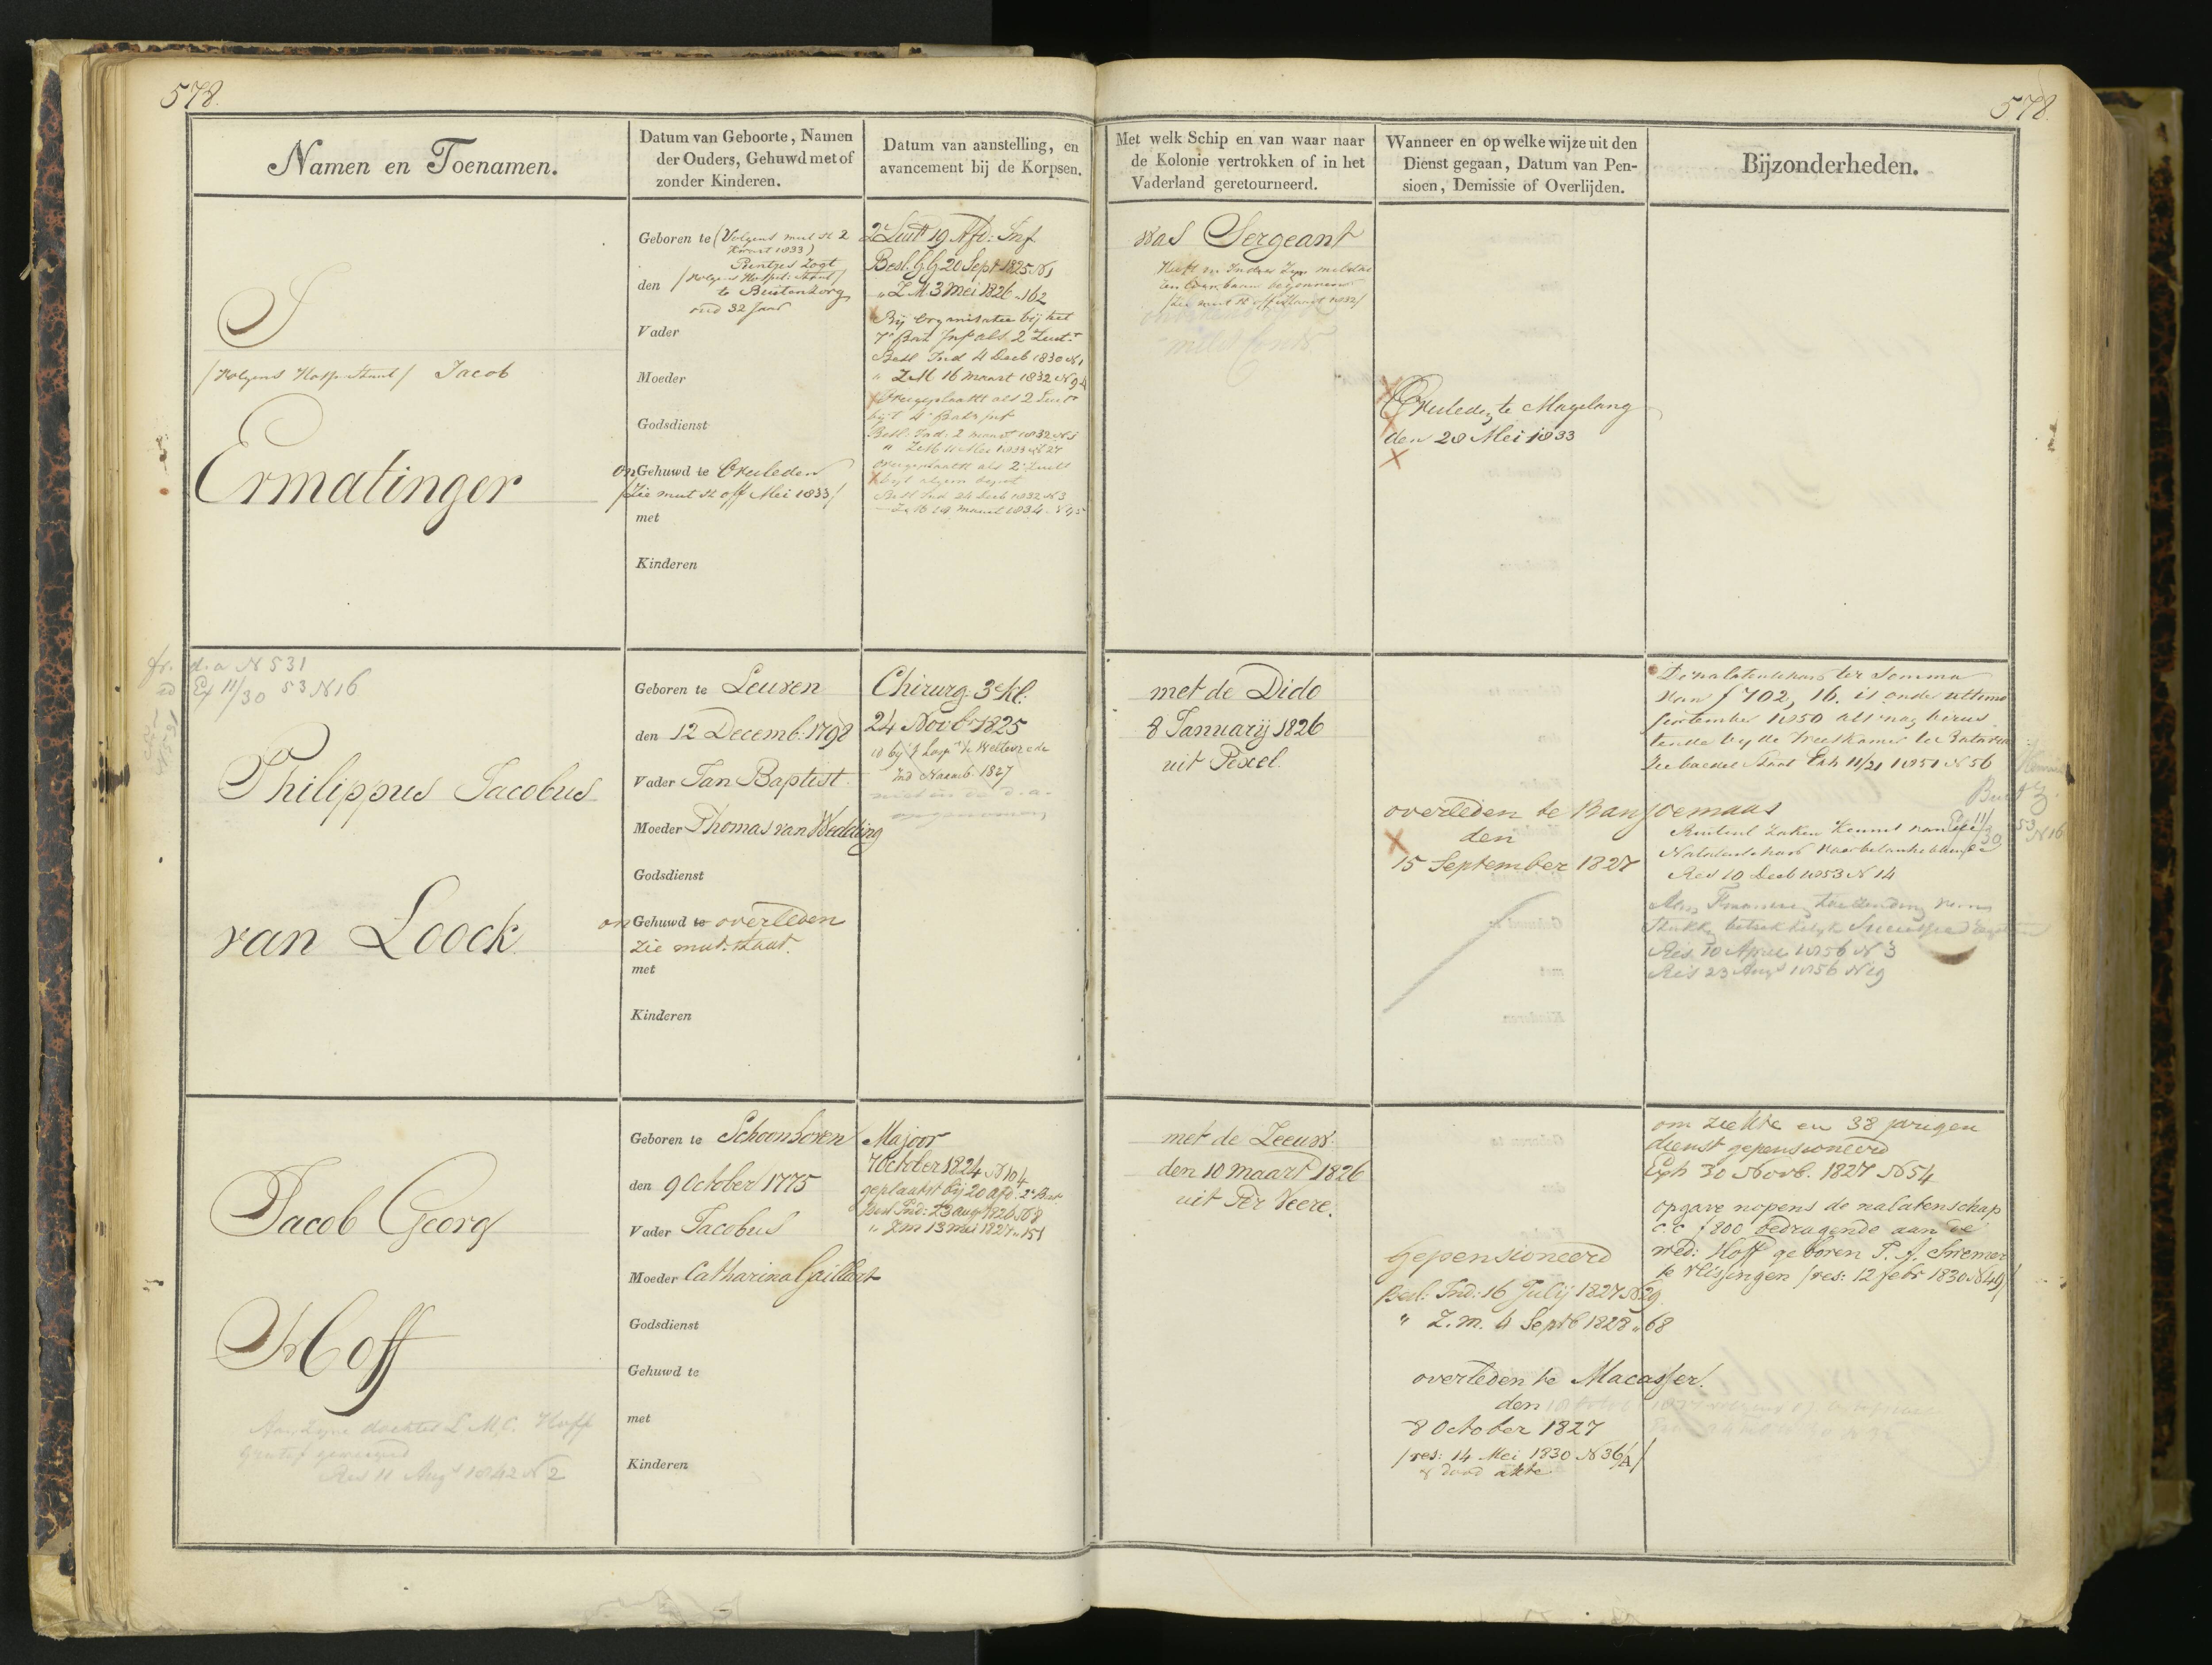 578.
578.
Namen en Toenamen.
Datum van Geboorte, Namen
der Ouders, Gehuwd met of
zonder Kinderen.
Datum van aanstelling, en
avancement bij de Korpsen.
Met welk Schip en van waar naar
de Kolonie vertrokken of in het
Vaderland geretourneerd.
Wanneer en op welke wijze uit den
Dienst gegaan, Datum van Pen-
sioen, Demissie of Overlijden.
Bijzonderheden.
J
/Volgens Hosp. Staat/ Jacob
Ermatinger
Geboren te (Volgens mut st 2
Kwart 1833)
Zogt
den /Volgens Hospit: Staat/
te Buitenzorg
oud 32 Jaar
Vader
Moeder
Godsdienst
onGehuwd te Overleden
/Zie mut st off Mei 1833/
met
Kinderen
2e Luitt 19 Afd: Inf.
Besl. G.G 20 Sept 1825 N1
" Z M 3 Mei 1826 " 162
Bij organisatie bij het
7e Bat Inf als 2 Luitt
Besl Ind 4 Decb 1830 N1
" Z M 16 maart 1832 N 94
Overgeplaatst als 2 Luitt
bij 't 4e Bat inf
Besl. Ind. 2 maart 1832 N
" Z M 11 Mei 1833 N 27
Overgeplaatst als 2e Luitt
bij 't algem depot
Besl Ind 24 Decb 1832 N3
" Z M 19 maart 1834 N 45
was Sergeant
Heeft in Indien zijn militaire
loopbaan begonnen
Overleden te Magelang
den 28 Mei 1833
d.a N 531
Ex 11/30 53 N16
Philippus Jacobus
van Loock
Geboren te Leuven
den 12 Decemb: 1798
Vader Jan Baptist
Moeder Thomas van Wedding
Godsdienst
onGehuwd te overleden
Zie mut. staat.
met
Kinderen
Chirurg. 3e Kl:
24 Novbr 1825
is bij 't hosp te Weltevrede
Ind Naamb. 1827
niet in de d.a.
opgenomen
met de Dido
8 Januarij 1826
uit Texel.
overleden te Banjoemaas
den
15 September 1827
De nalatenschap ter Somma
van f 702,16. is onder ultimo
September 1850 als nog berus
tende bij de Weeskamer te Batavia
Zie Staat Exh 11/21 1851 N 56
Buit Z.
Ex 11/30 53 N16
Nalatenschap voor belanhebbende
Res 10 Decb 1853 N 14
Res 10 April 1856 N 3
Res 23 Augs 1856 N 19
Jacob Georg
Hoff
Aan zyne dochter L.M.C. Hoff
gratif geweigerd
Res 11 Augs 1842 N 2
Geboren te Schoonhoven
den 9 October 1775
Vader Jacobus
Moeder Catharina Gaillart
Godsdienst
Gehuwd te
met
Kinderen
Majoor
7 October 1824 N 104
geplaatst bij 20 afd: 2e Bat
Besl Ind: 23 aug 1826 N 8
" Z m 13 mei 1827 " 151
met de Zeeuw.
den 10 maart 1826
uit Ter Veere.
Gepensioneerd
Besl: Ind: 16 Julij 1827 N 29
" Z. m. 4 Septb 1828 " 68
overleden te Macasser.
den
8 October 1827
/res: 14 Mei 1830 N 36/A/
& dood akte
om ziekte en 38 jarigen
dienst gepensioneerd
Exh 30 Novb. 1827 N 54
opgave nopens de nalatenschap
c.c f 800 bedragende aan de
wed: Hoff geboren
te Vlissingen /res: 12 febr 1830 N 49/